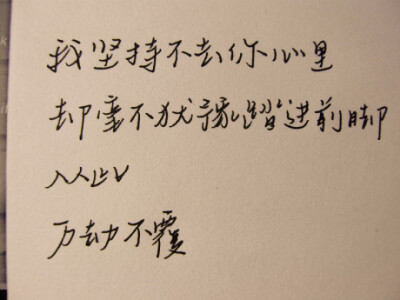 我坚持不去你心里
却毫不犹豫踏进前脚
从此
万劫不覆